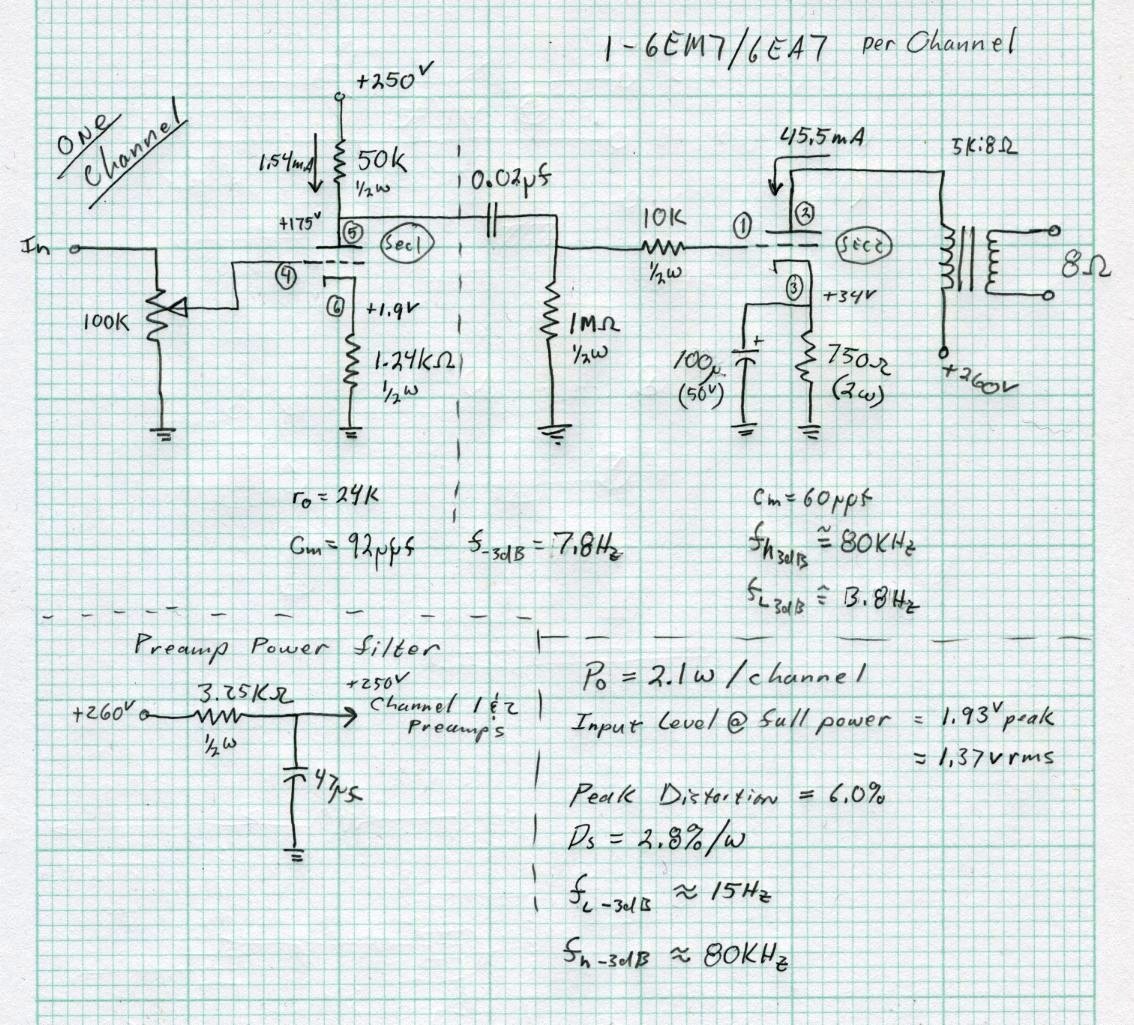 1-6EM7/6EA7 per Channel
ONE Channel
+250V
1.54mA
50K
1/2w
+175V
0.02µf
45.5mA
5K:8Ω
In
100K
4
5
Sec1
6
+1.9V
1.24KΩ
1/2w
10K
1/2w
1MΩ
1/2w
1
2
Sec2
3
+34V
100µ
(50V)
750Ω
(2w)
8Ω
+260V
ro = 24K
Cm = 92µµf
f-3dB = 7.8Hz
Cm = 60µµf
fh3dB ≅ 80KHz
fL3dB ≅ 3.8Hz
Preamp Power filter
+260V
3.25KΩ
1/2w
+250V
Channel 1 & 2
Preamp's
47µf
Po = 2.1w/channel
Input Level @ full power = 1.93V peak
= 1.37Vrms
Peak Distortion = 6.0%
Ds = 2.8%/w
fL-3dB ≈ 15Hz
fh-3dB ≈ 80KHz